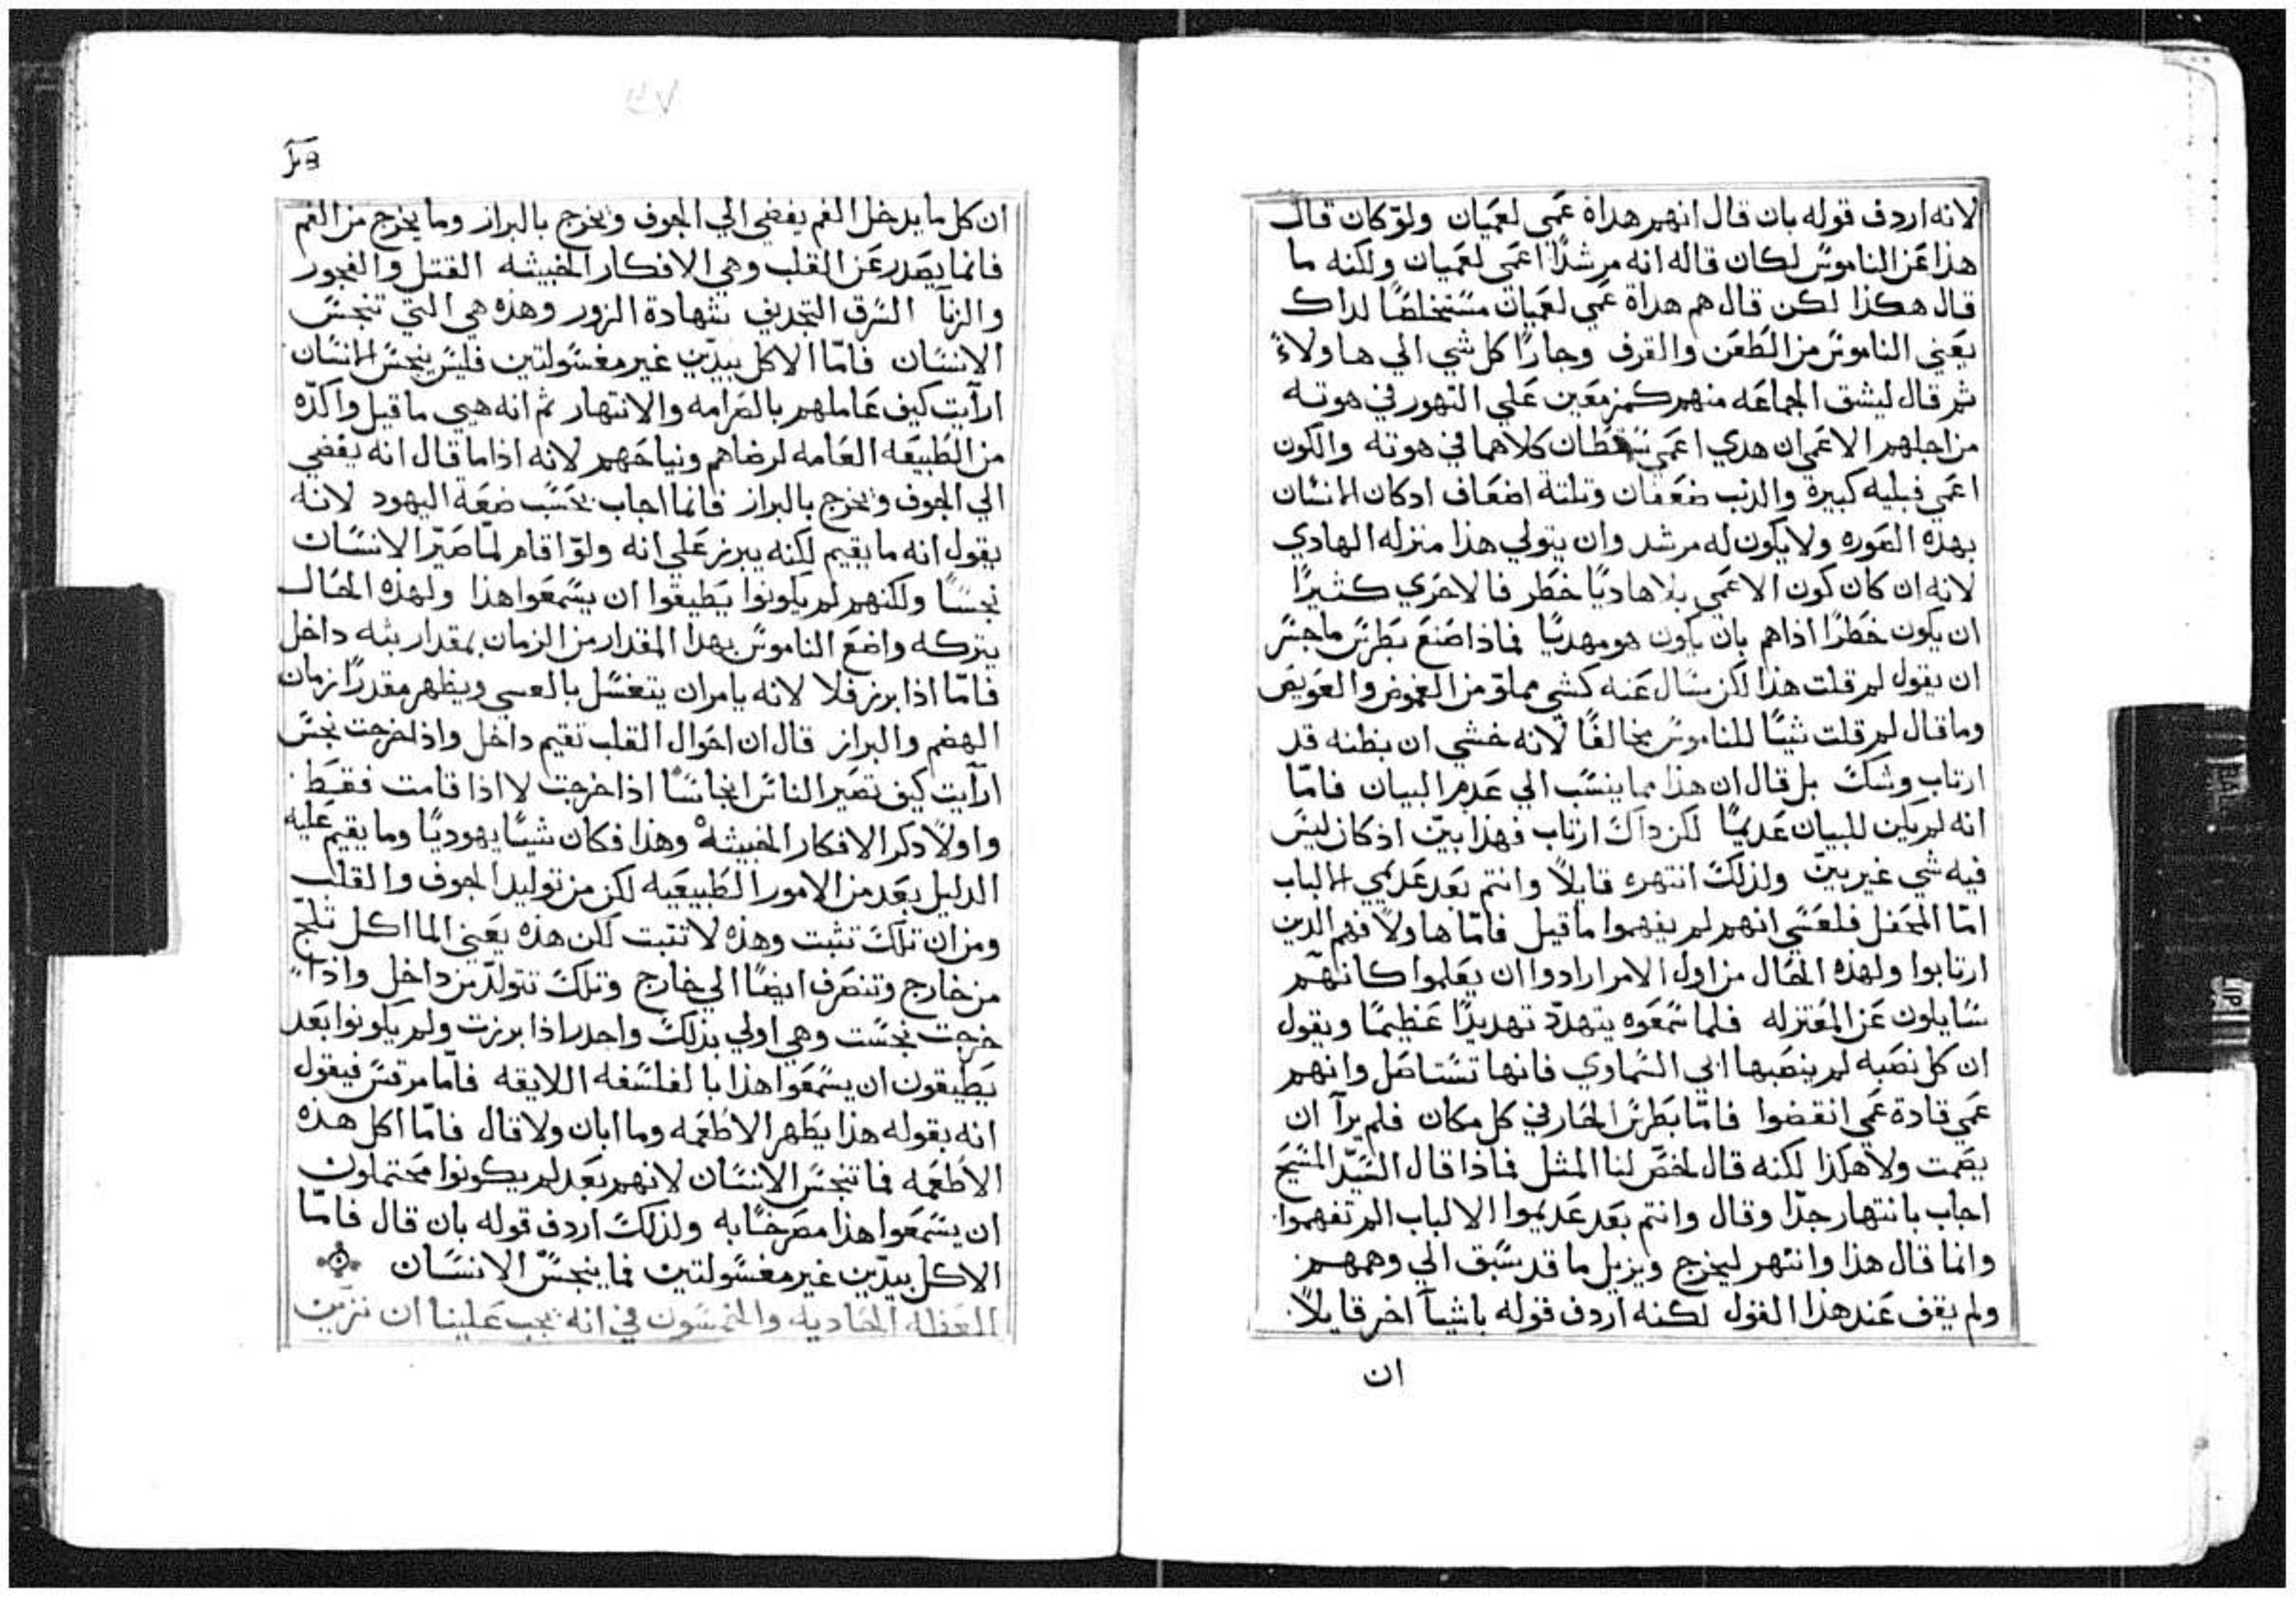 لانه اردف قوله بان قال انهم هداة عمي لعميان ولو كان قال
هذا عن الناموس لكان قاله انه مرشدًا اعمي لعميان ولكنه ما
قال هكذا لكن قال هم هداة عمي لعميان مستخلصًا لداك
يعني الناموس من الطعن والقرف وجارًا كل شي الي هاولاء
ثم قال ليشق الجماعه منهم كمزمعين علي التهور في هوته
من اجلهم الاعمي ان هدي اعمي سقطان كلاهما في هوته والكون
اعمي فبليه كبيرة والذنب ضعفان وتلتة اضعاف ادكان الانسان
بهذه العوره ولا يكون له مرشد وان يتولي هذا منزله الهادي
لانه ان كان كون الاعمي بلا هاديًا خطر فالاحري كثيرًا
ان يكون خطرًا اذا هم بان يكون هو مهديًا فماذا صنع بطرس ما جسر
ان يقول لم قلت هذا لكن سال عنه كشي مملوّ من الغموض والعويص
وما قال لم قلت شيًا للناموس مخالفًا لانه خشي ان يظنه قد
ارتاب وشك بل قال ان هذا مما ينسب الي عدم البيان فامّا
انه لم يكن للبيان عديمًا لكن داك ارتاب فهذا بيّن اذ كان ليس
فيه شي غير بيّن ولذلك انتهره قايلاً وانتم بعد عديمي الالباب
امّا المحفل فلعسي انهم لم يفهموا ما قيل فامّا هاولا فهم الدين
ارتابوا ولهذه الحال من اول الامر ارادوا ان يعلموا كانهم
سايلون عن المعتزله فلما سمعوه يتهدّد تهديدًا عظيمًا ويقول
ان كل نصبه لم ينصبها ابي السماوي فانها تستاصل وانهم
عمي قادة عمي انقضوا فامّا بطرس الحار في كل مكان فلم يرآ ان
يصمت ولا هكذا لكنه قال لخص لنا المثل فماذا قال السّيد المسيح
اجاب بانتهار جدًا وقال وانتم بعد عديموا الالباب الم تفهموا
وانما قال هذا وانتهر ليخرج ويزيل ما قد سبق الي وهمهم
ولم يقف عند هذا القول لكنه اردف قوله باشيآ اخر قايلاً
ان
ان كل ما يدخل الفم يفضي الي الجوف ويخرج بالبراز وما يخرج من الفم
فانما يصدر عن القلب وهي الافكار الخبيثه القتل والفجور
والزنآ السرق التجديف شهادة الزور وهذه هي التي تنجس
الانسان فامّا الاكل بيدّين غير مغسولتين فليس ينجس الانسان
ارآيت كيف عاملهم بالصرامه والانتهار ثم انه هيي ما قيل واكدّه
من الطبيعه العامه لرضاهم ونياحهم لانه اذا ما قال انه يفضي
الي الجوف ويخرج بالبراز فانما اجاب بحسب ضعة اليهود لانه
يقول انه ما يقيم لكنه يبرز علي انه ولو اقام لما صيّر الانسان
نجسًا ولكنهم لم يكونوا يطيقوا ان يسمعوا هذا ولهذه الحال
يتركه واضع الناموس بهدا المقدار من الزمان بمقدار بثه داخل
فامّا اذا برز فلا لانه يامر ان يتغسل بالعسي ويظهر مقدرًا زمان
الهضم والبراز قال ان احوال القلب تقيم داخل واذا خرجت نجس
ارآيت كيف تصير الناس انجاسًا اذا خرجت لا اذا قامت فقط
واولاً دكر الافكار الخبيثه وهذا فكان شيًا يهوديًا وما يقيم عليه
الدليل بعد من الامور الطبيعيه لكن من توليد الجوف والقلب
ومن ان تلك تثبت وهذه لا تتبت لكن هذه يعني الماكل تلج
من خارج وتنصرف ايضًا الي خارج وتلك تتولدّ من داخل واذا
خرجت نجست وهي اولي بذلك واحدر اذا برزت ولم يكونوا بعد
يطيقون ان يسمعوا هذا بالفلسفه اللايقه فامّا مرقس فيقول
انه بقوله هذا يطهر الاطعمه وما ابان ولا قال فامّا اكل هذه
الاطعمه فما تنجس الانسان لانهم بعد لم يكونوا محتملون
ان يسمعوا هذا مصرخًا به ولذلك اردف قوله بان قال فامّا
الاكل بيدّين غير مغسولتين فما ينجس الانسان
العظه الحاديه والخمسون في انه يجب علينا ان نزين